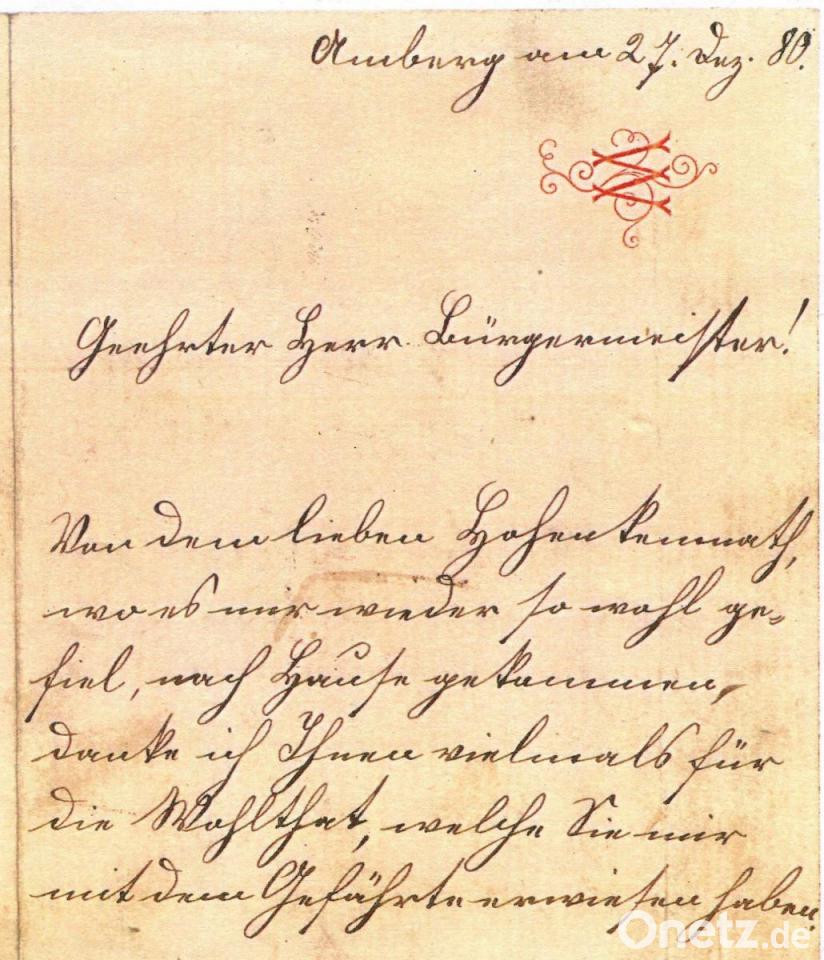 Amberg am 27. Dez. 80.
Geehrter Herr Bürgermeister!
Von dem lieben Hohenkemnath,
wo es mir wieder so wohl ge-
fiel, nach Hause gekommen,
danke ich Ihnen vielmals für
die Wohlthat, welche Sie mir
mit dem Gefährte erwiesen haben.
Onetz.de